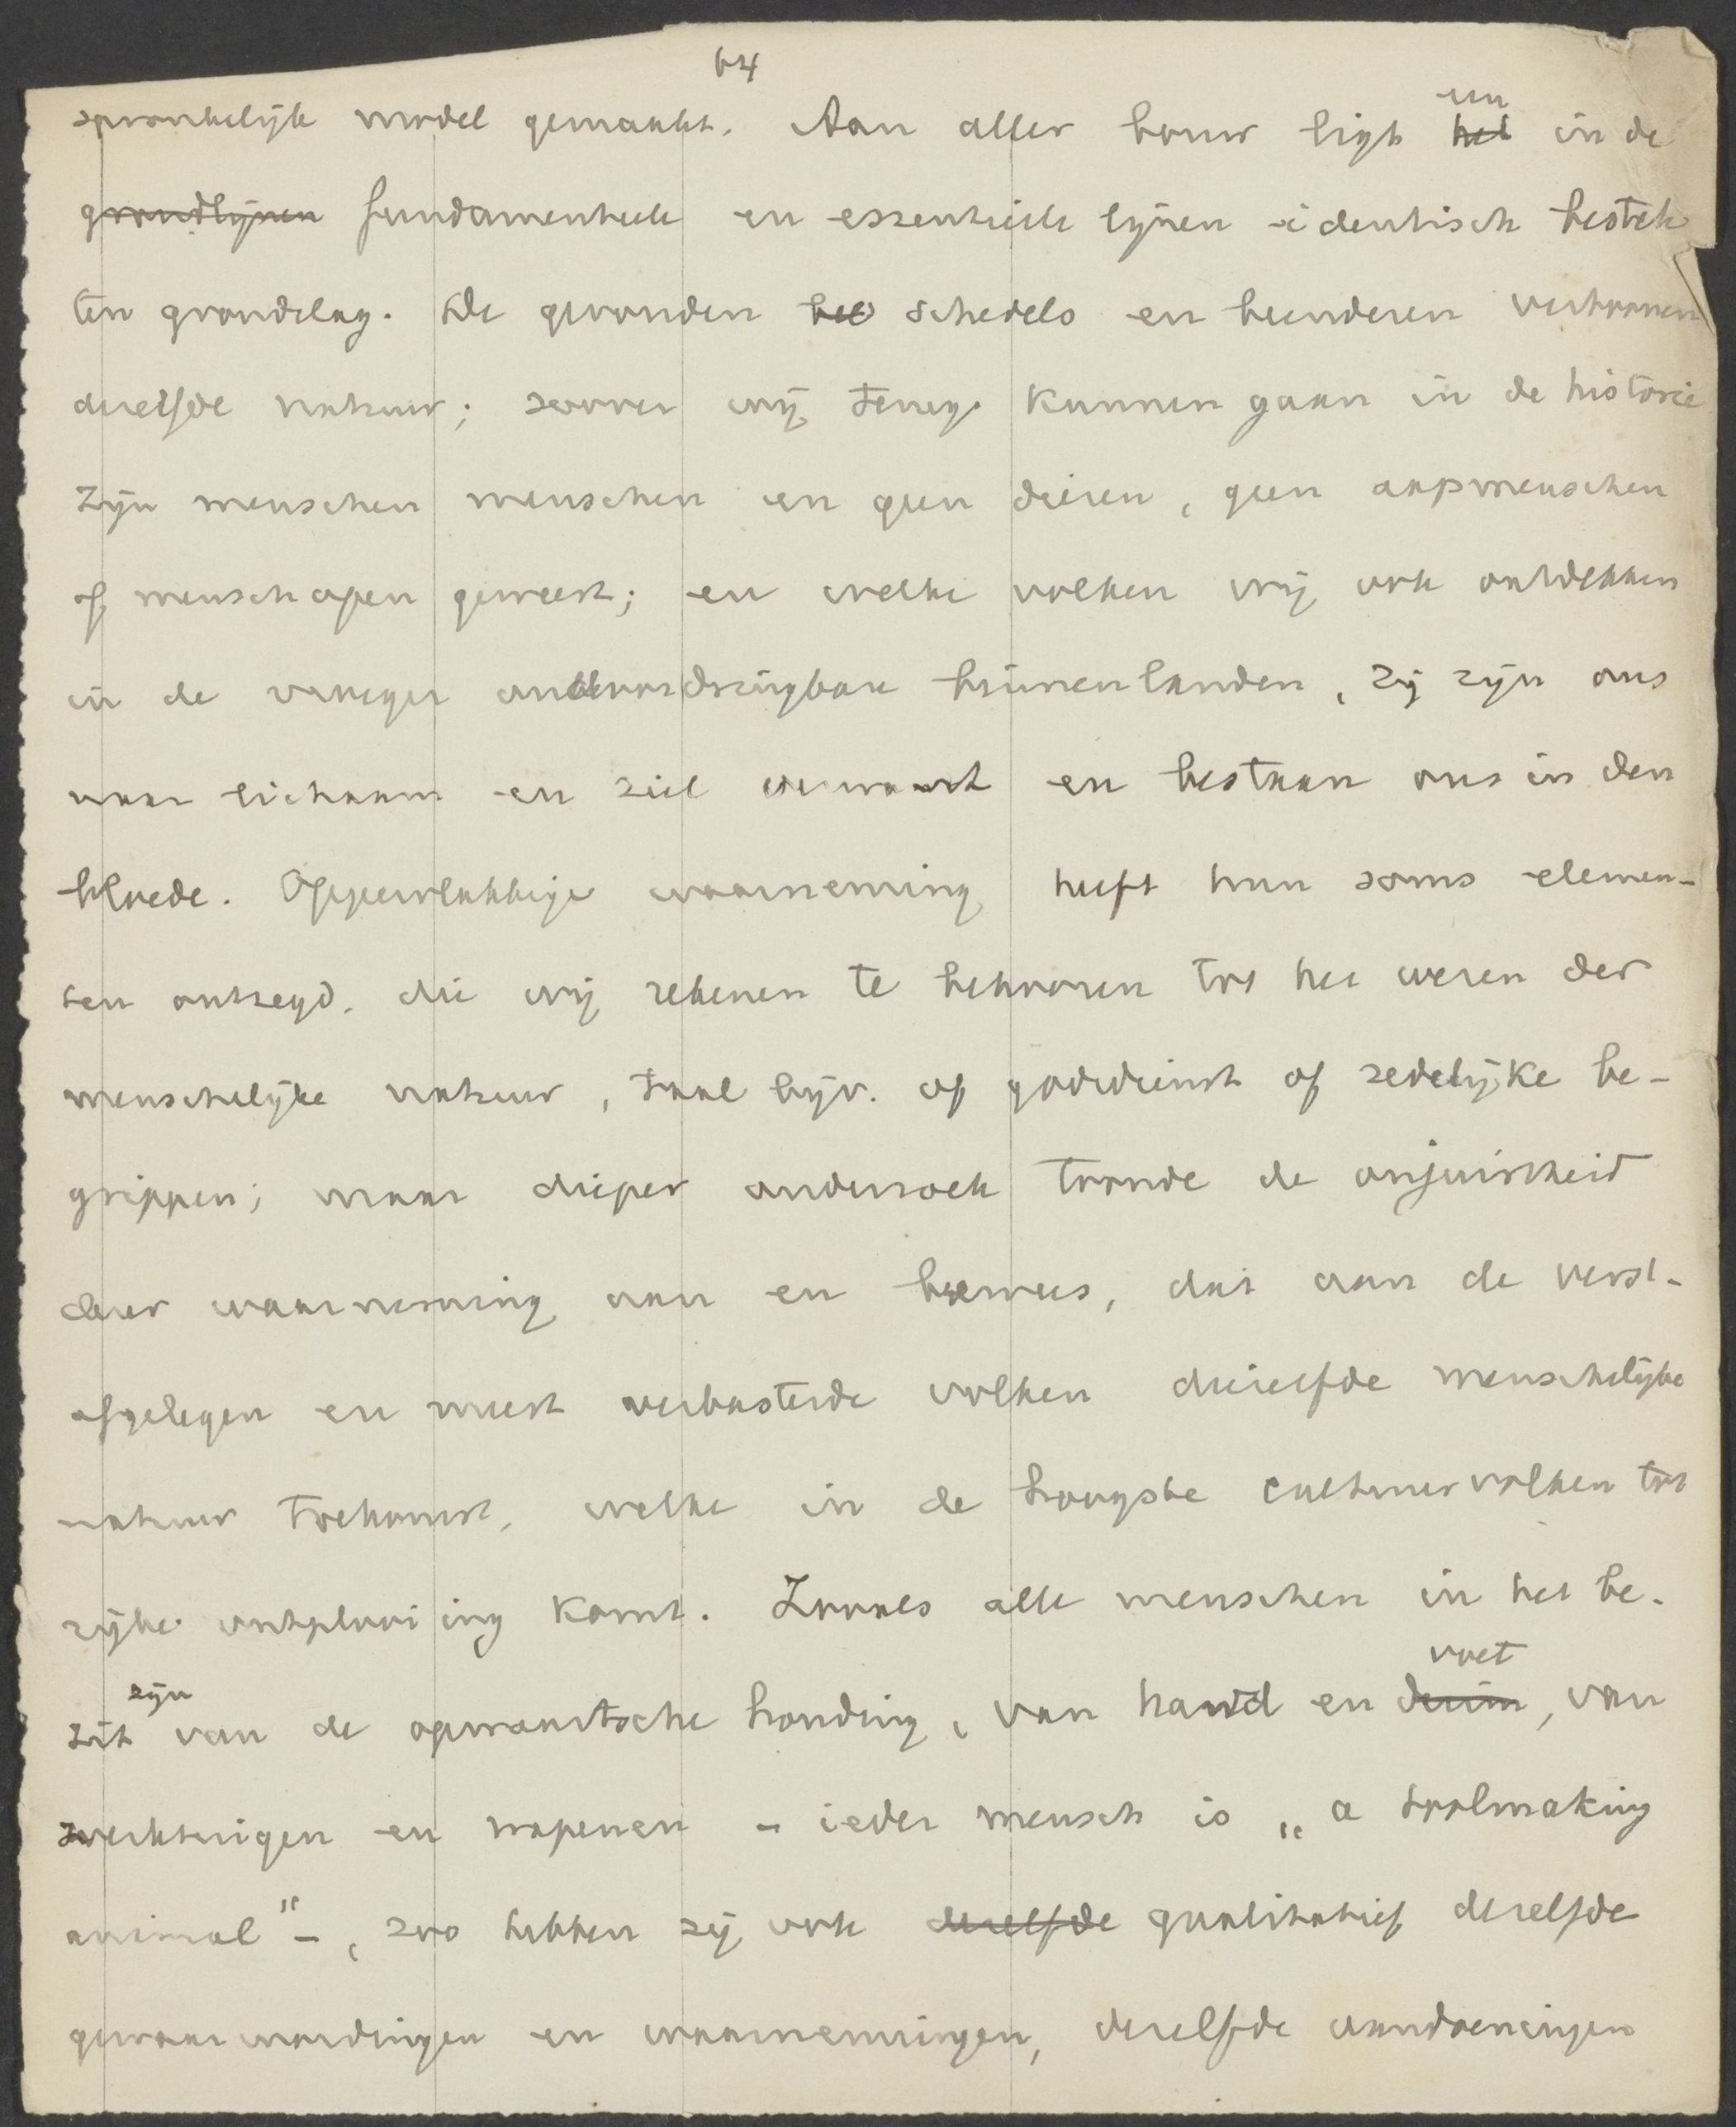 64
spronkelijk model gemaakt. Aan aller bouw ligt ~~het~~ een in de
~~grondlijnen~~ fundamenteele en essentieele lijnen identisch bestek
ten grondslag. De gevonden schedels en beenderen vertoonen
dezelfde natuur; zoover wij terug kunnen gaan in de historie
zijn menschen menschen en geen dieren, geen aapmenschen
of menschapen geweest; en welke volken wij ook ontdekken
in de vroeger ondoordringbare binnenlanden, zij zijn ons
naar lichaam en ziel verwant en bestaan ons in den
bloede. Oppervlakkige waarneming heeft hun soms elemen-
ten ontzegd, die wij rekenen te behooren tot het wezen der
menschelijke natuur, taal bijv. of godsdienst of zedelijke be-
grippen; maar dieper onderzoek toonde de onjuistheid
dezer waarneming aan en bewees, dat aan de verst-
afgelegen en meest verbasterde volken diezelfde menschelijke
natuur toekomt, welke in de hoogste cultuurvolken tot
rijke ontplooiing komt. Zooals alle menschen in het be-
zit zijn van de opwaartsche houding, van hand en ~~duim~~ voet, van
werktuigen en wapenen - ieder mensch is „a toolmaking
animal" -, zoo hebben zij ook ~~dezelfde~~ qualitatief dezelfde
gewaarwordingen en waarnemingen, dezelfde aandoeningen